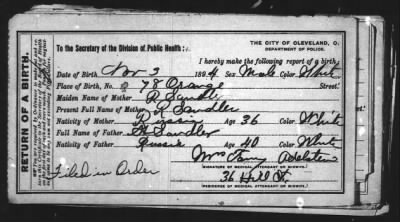 THE CITY OF CLEVELAND, O.
DEPARTMENT OF POLICE.
To the Secretary of the Division of Public Health:
I hereby make the following report of a birth.
Date of Birth, Nov 3 1894 Sex, Male Color White
Place of Birth, No. 78 Orange Street.
Maiden Name of Mother R Sandler
Present Full Name of Mother R Sandler
Nativity of Mother Russia Age 36 Color White
Full Name of Father Sandler
Nativity of Father Russia Age 40 Color White
Mrs Fanny Adelstein
(SIGNATURE OF MEDICAL ATTENDANT OR MIDWIFE.)
Filed in Order
36 St
(RESIDENCE OF MEDICAL ATTENDANT OR MIDWIFE.)
RETURN OF A BIRTH.